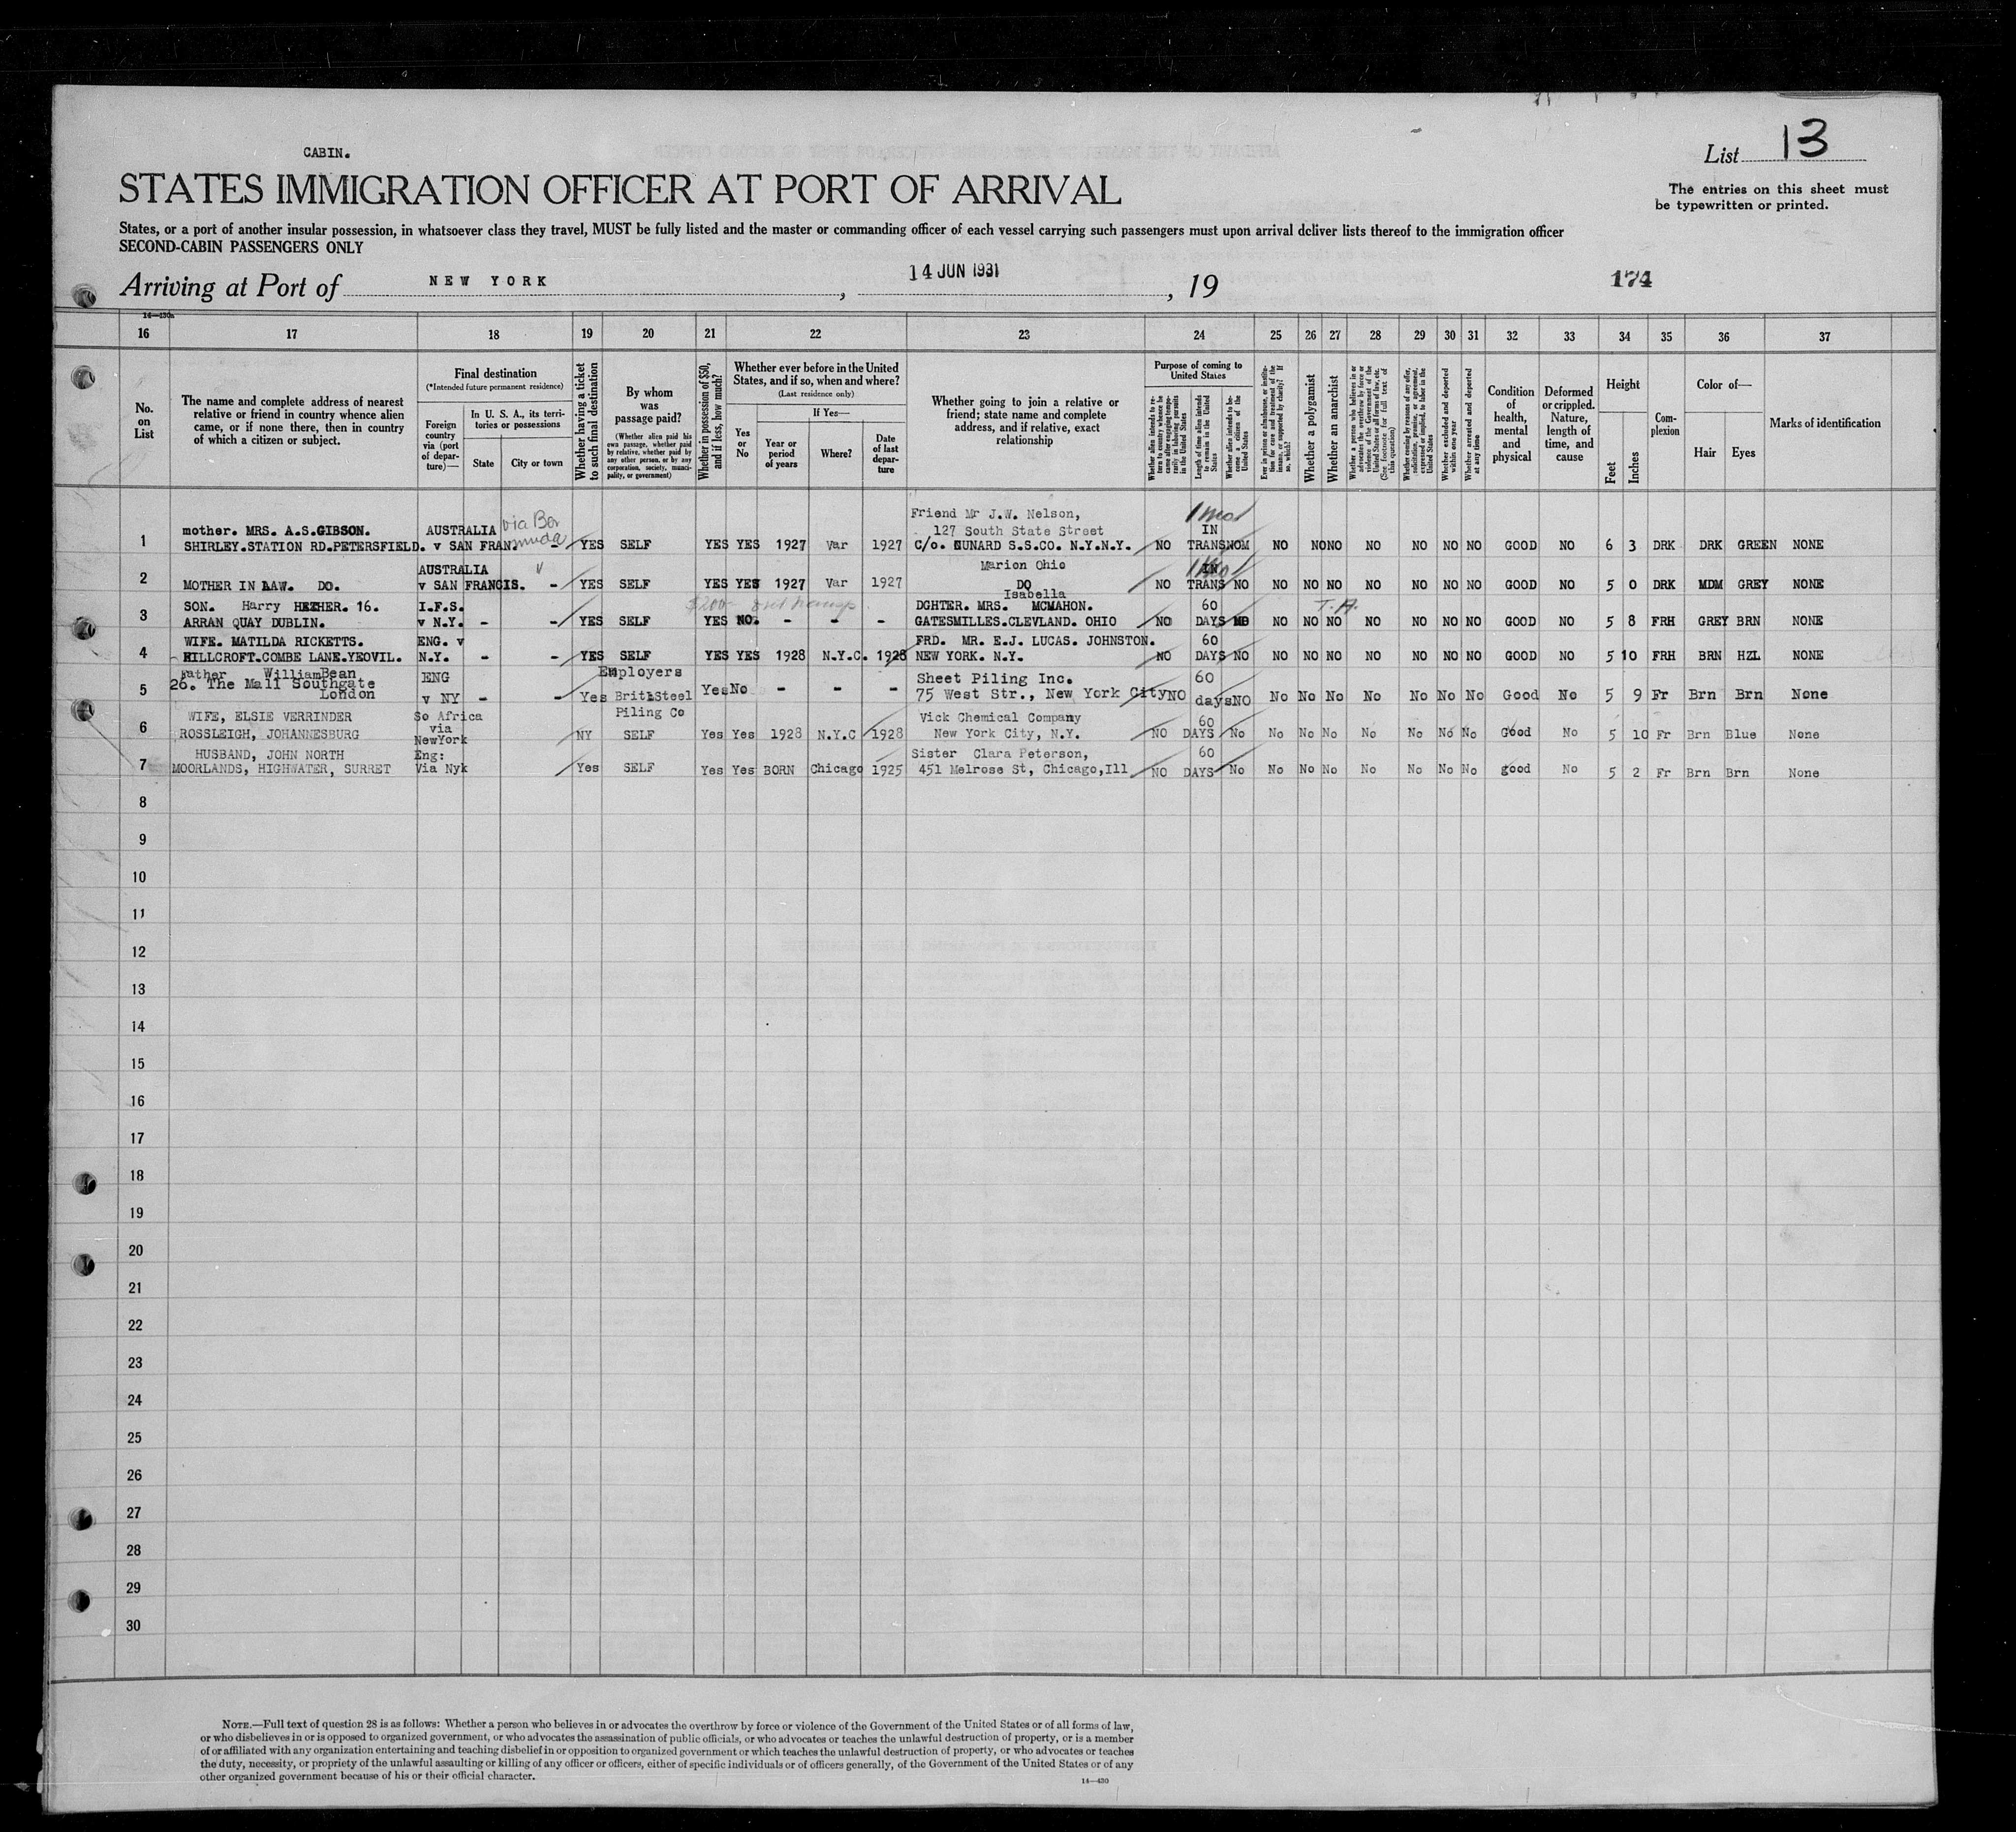 CABIN.
List 13
STATES IMMIGRATION OFFICER AT PORT OF ARRIVAL
The entries on this sheet must
be typewritten or printed.
States, or a port of another insular possession, in whatsoever class they travel, MUST be fully listed and the master or commanding officer of each vessel carrying such passengers must upon arrival deliver lists thereof to the immigration officer
SECOND-CABIN PASSENGERS ONLY
Arriving at Port of NEW YORK, 14 JUN 1931, 19
174
14—430a
16 17 18 19 20 21 22 23 24 25 26 27 28 29 30 31 32 33 34 35 36 37
No. on List
The name and complete address of nearest relative or friend in country whence alien came, or if none there, then in country of which a citizen or subject.
Final destination
(*Intended future permanent residence)
Foreign country via (port of departure)—
In U. S. A., its territories or possessions
State
City or town
Whether having a ticket to such final destination
By whom was passage paid?
(Whether alien paid his own passage, whether paid by relative, whether paid by any other person, or by any corporation, society, municipality, or government)
Whether in possession of $50, and if less, how much?
Whether ever before in the United States, and if so, when and where?
(Last residence only)
Yes or No
If Yes—
Year or period of years
Where?
Date of last departure
Whether going to join a relative or friend; state name and complete address, and if relative, exact relationship
Purpose of coming to United States
Whether alien intends to return to country whence he came after engaging temporarily in laboring pursuits in the United States
Length of time alien intends to remain in the United States
Whether alien intends to become a citizen of the United States
Ever in prison or almshouse, or institution for care and treatment of the insane, or supported by charity? If so, which?
Whether a polygamist
Whether an anarchist
Whether a person who believes in or advocates the overthrow by force or violence of the Government of the United States or all forms of law, etc. (See footnote for full text of this question)
Whether coming by reasons of any offer, solicitation, promise, or agreement, expressed or implied, to labor in the United States
Whether excluded and deported within one year
Whether arrested and deported at any time
Condition of health, mental and physical
Deformed or crippled. Nature, length of time, and cause
Height
Feet
Inches
Complexion
Color of—
Hair
Eyes
Marks of identification
Friend Mr J.W. Nelson, 1 mo
mother. MRS. A.S.GIBSON. AUSTRALIA via Ber 127 South State Street IN
1 SHIRLEY.STATION RD.PETERSFIELD. v SAN FRAN. muda - YES SELF YES YES 1927 Var 1927 C/o. CUNARD S.S.CO. N.Y.N.Y. NO TRANS NO NO NO NO NO NO NO NO GOOD NO 6 3 DRK DRK GREEN NONE
AUSTRALIA Marion Ohio IN
2 MOTHER IN LAW. DO. v SAN FRANCIS. - YES SELF YES YES 1927 Var 1927 DO NO TRANS NO NO NO NO NO NO NO NO GOOD NO 5 0 DRK MDM GREY NONE
Isabella
SON. Harry 16. I.F.S. $200- DGHTER. MRS. MCMAHON. 60 T.A.
3 ARRAN QUAY DUBLIN. v N.Y. - - YES SELF YES NO. - - - GATESMILLES.CLEVLAND. OHIO NO DAYS NO NO NO NO NO NO NO NO GOOD NO 5 8 FRH GREY BRN NONE
WIFE. MATILDA RICKETTS. ENG. v FRD. MR. E.J. LUCAS. JOHNSTON. 60
4 HILLCROFT.COMBE LANE.YEOVIL. N.Y. - - YES SELF YES YES 1928 N.Y.C. 1928 NEW YORK. N.Y. NO DAYS NO NO NO NO NO NO NO NO GOOD NO 5 10 FRH BRN HZL NONE
Father William Bean ENG Employers Sheet Piling Inc. 60
5 26. The Mall Southgate London v NY - - Yes Brit.Steel Piling Co Yes No - - - 75 West Str., New York City NO days NO No No No No No No No Good No 5 9 Fr Brn Brn None
WIFE, ELSIE VERRINDER So Africa Vick Chemical Company 60
6 ROSSLEIGH, JOHANNESBURG via NewYork NY SELF Yes Yes 1928 N.Y.C 1928 New York City, N.Y. NO DAYS No No No No No No No No Good No 5 10 Fr Brn Blue None
HUSBAND, JOHN NORTH Eng: Sister Clara Peterson, 60
7 MOORLANDS, HIGHWATER, SURRET Via Nyk Yes SELF Yes Yes BORN Chicago 1925 451 Melrose St, Chicago,Ill NO DAYS No No No No No No No No good No 5 2 Fr Brn Brn None
8
9
10
11
12
13
14
15
16
17
18
19
20
21
22
23
24
25
26
27
28
29
30
NOTE.—Full text of question 28 is as follows: Whether a person who believes in or advocates the overthrow by force or violence of the Government of the United States or of all forms of law,
or who disbelieves in or is opposed to organized government, or who advocates the assassination of public officials, or who advocates or teaches the unlawful destruction of property, or is a member
of or affiliated with any organization entertaining and teaching disbelief in or opposition to organized government or which teaches the unlawful destruction of property, or who advocates or teaches
the duty, necessity, or propriety of the unlawful assaulting or killing of any officer or officers, either of specific individuals or of officers generally, of the Government of the United States or of any
other organized government because of his or their official character.
14—430